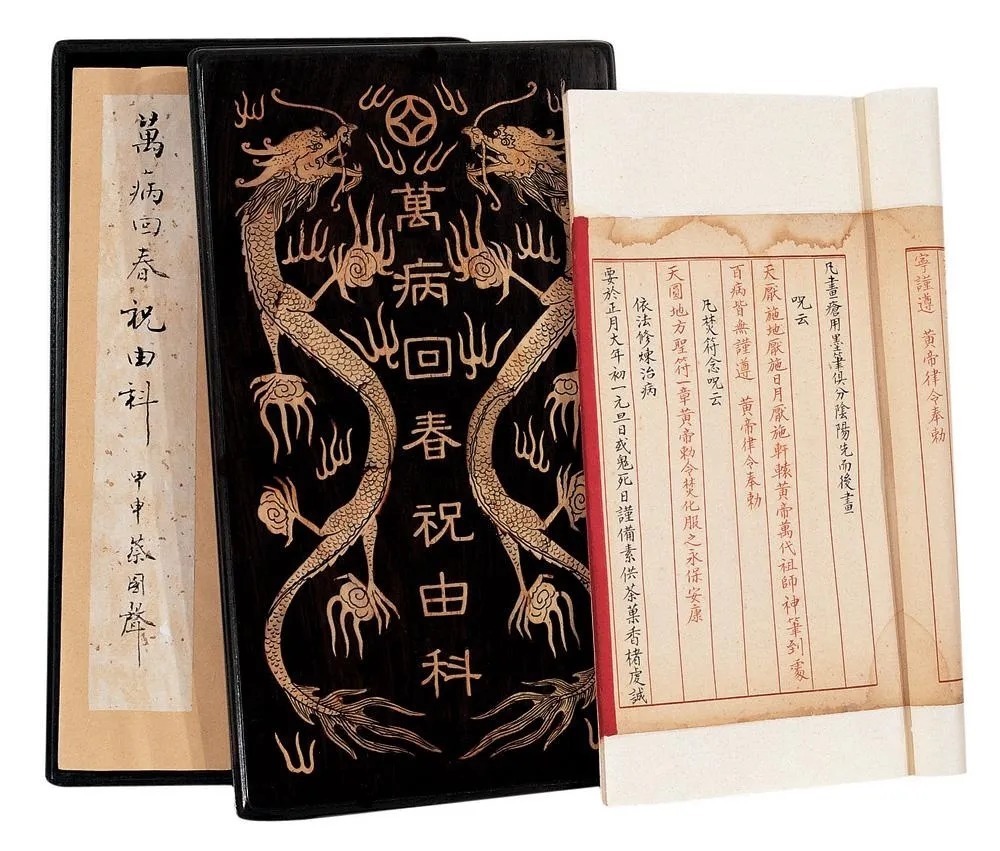 萬病回春祝由科
甲申 蔡國聲
萬病回春祝由科
寧謹遵 黃帝律令奉勅
凡畫瘡用墨筆俱分陰陽先而後畫
呪云
天厭施地厭施日月厭施軒轅黃帝萬代祖師神筆到處
百病皆無謹遵 黃帝律令奉勅
凡焚符念呪云
天圓地方聖符一章黃帝勅令焚化服之永保安康
依法修煉治病
要於正月大年初一元旦日或鬼死日謹備素供茶菓香楮虔誠